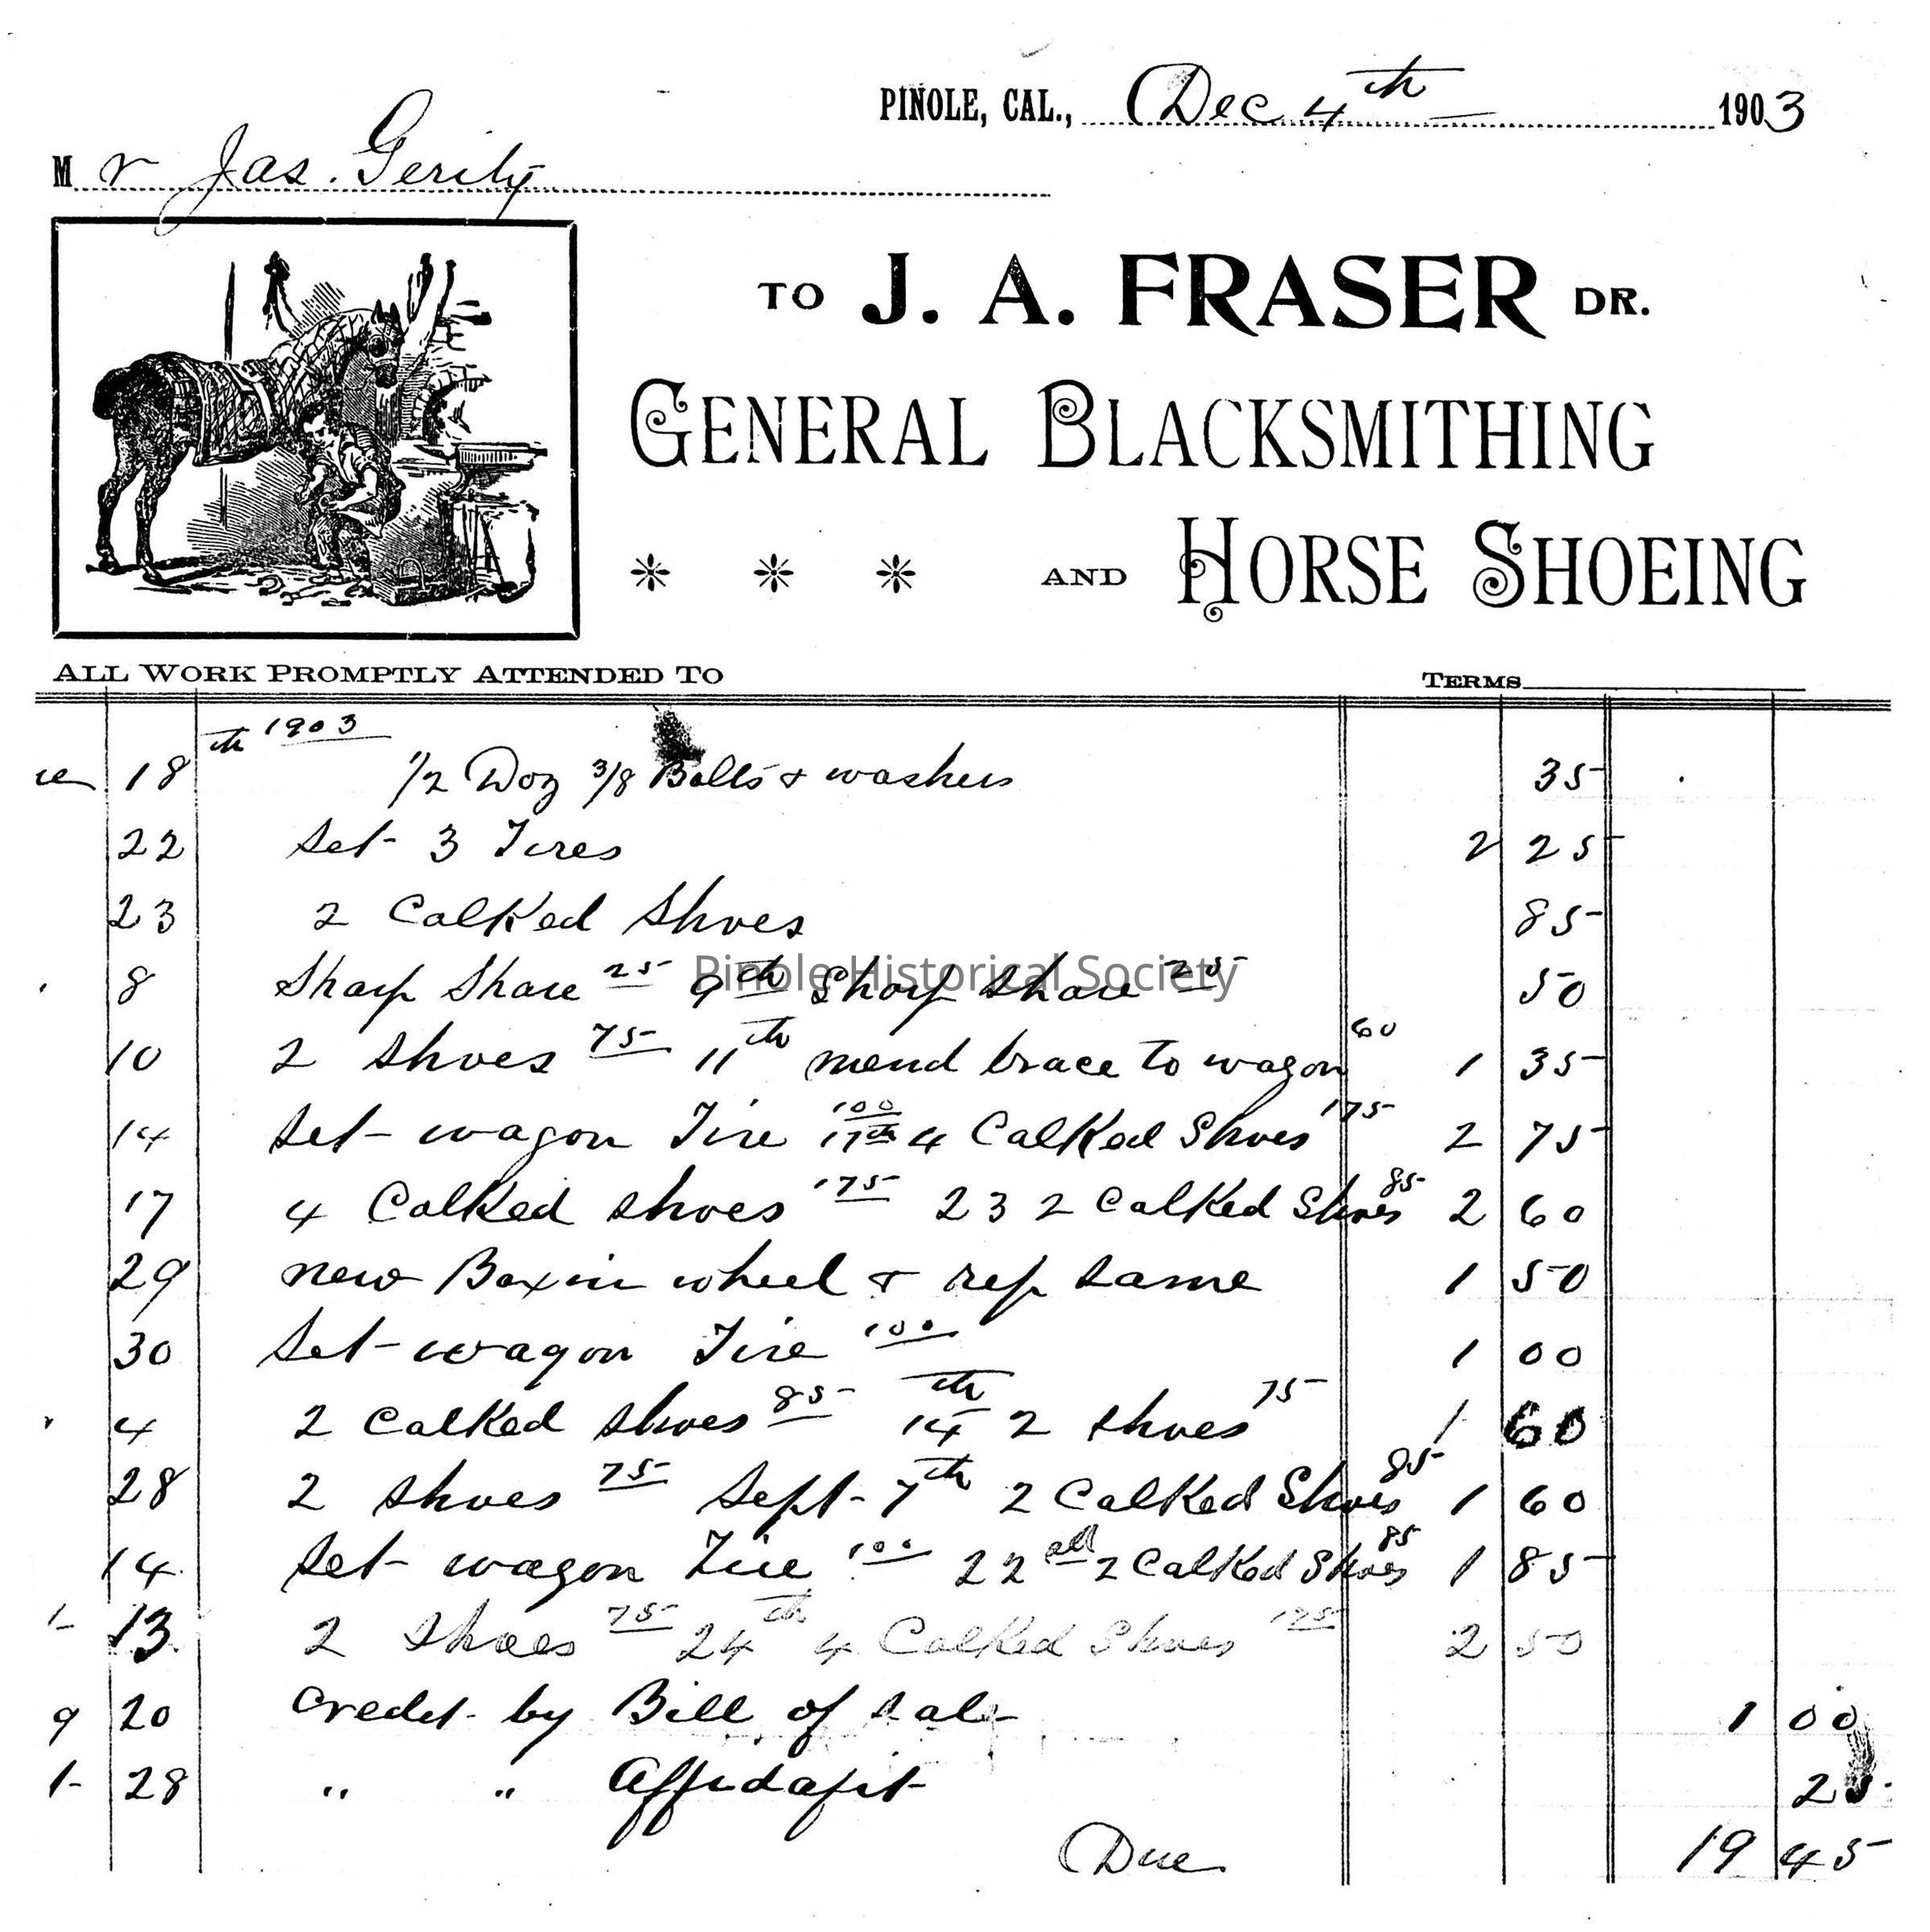 PINOLE, CAL., Dec 4th 1903
Mr Jas. Gerity
TO J. A. FRASER DR.
GENERAL BLACKSMITHING
AND HORSE SHOEING
ALL WORK PROMPTLY ATTENDED TO TERMS
th 1903
18 1/2 Doz 3/8 Bolts & washers 35
22 Set 3 Tires 2 25
23 2 Calked Shoes 85
8 Sharp Share 25 9th Sharp Share 25 50
Pinole Historical Society
10 2 Shoes 75 11th mend brace to wagon 60 1 35
14 Set wagon Tire 100 17th 4 Calked Shoes 175 2 75
17 4 Calked Shoes 175 23 2 Calked Shoes 85 2 60
29 new Box in wheel & rep same 1 50
30 Set wagon Tire 100 1 00
4 2 Calked Shoes 85 14th 2 Shoes 75 1 60
28 2 Shoes 75 Sept 7th 2 Calked Shoes 85 1 60
14 Set wagon Tire 100 22 2 Calked Shoes 85 1 85
13 2 Shoes 75 24th 4 Calked Shoes 175 2 50
9 20 Credet by Bill of Sale 1 00
28 " " Affidafit 25
Due 19 45